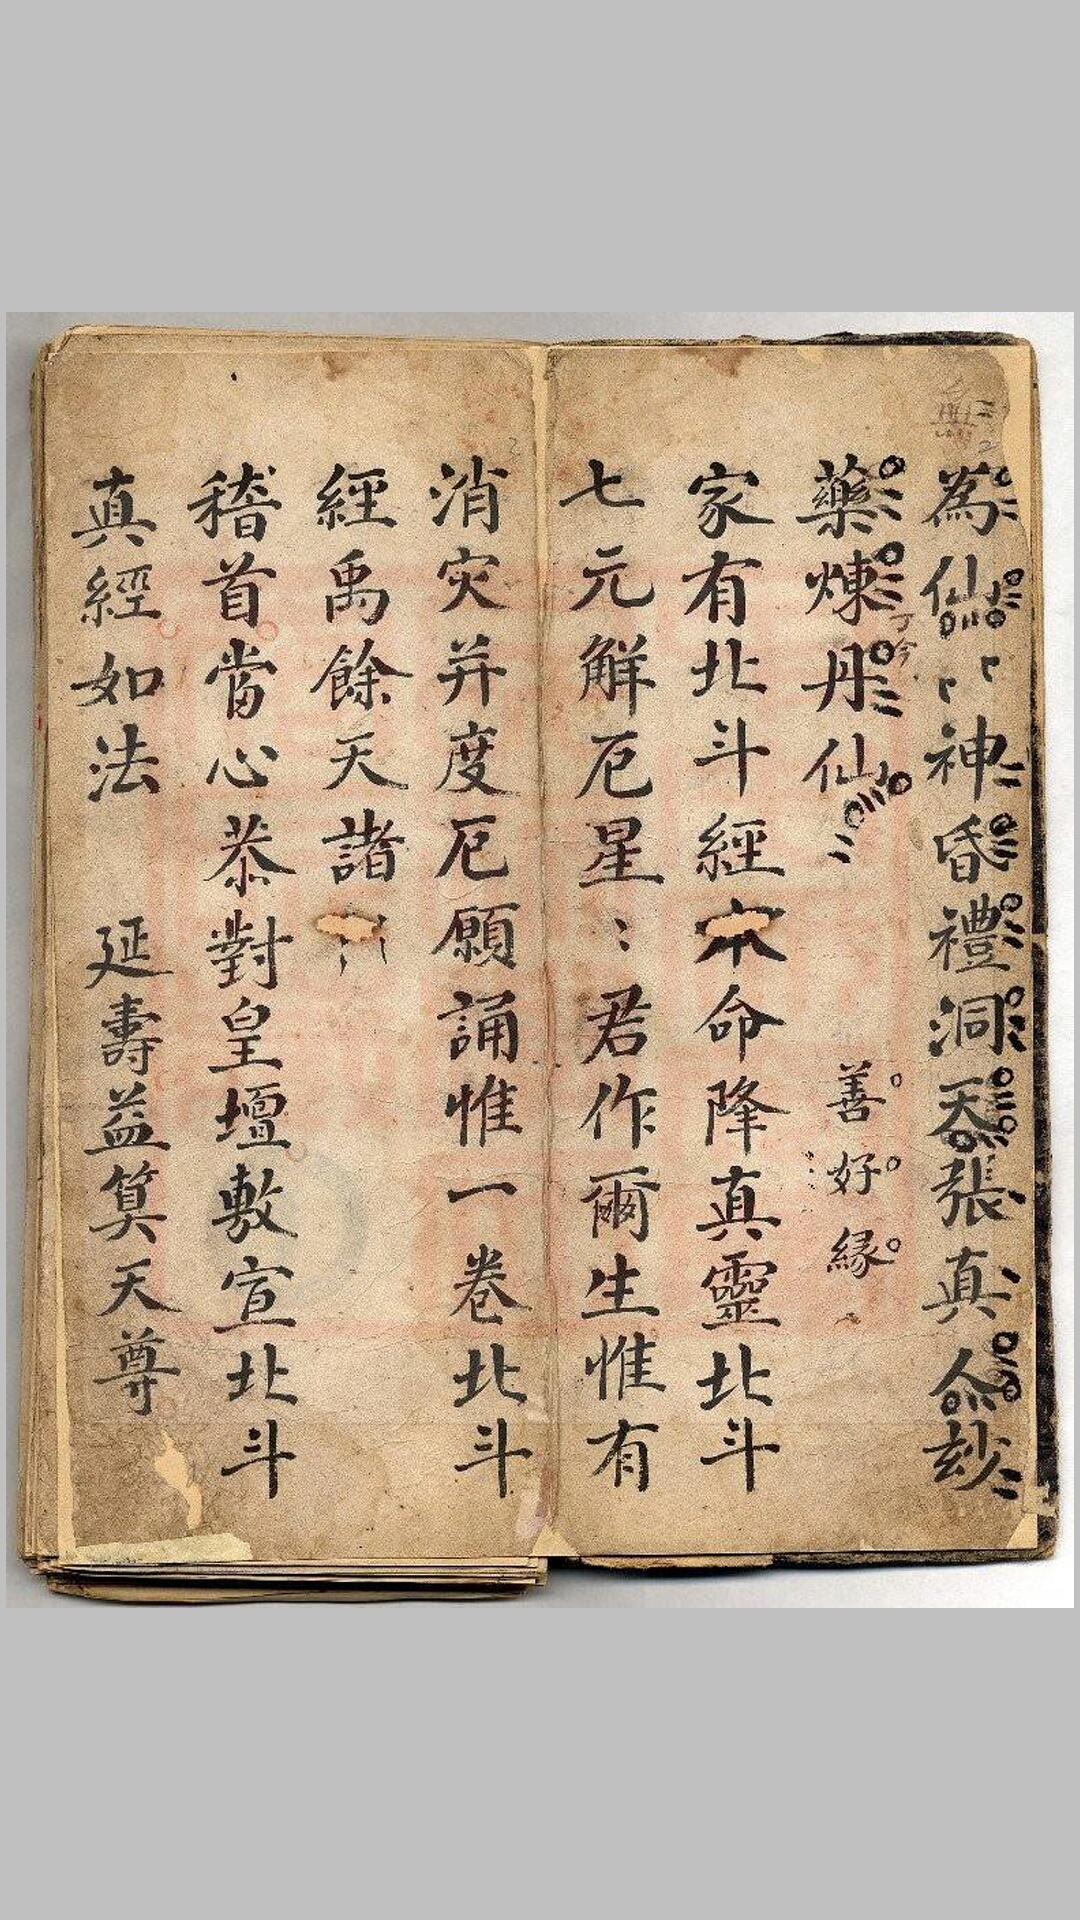 為仙〻神昏禮洞天張真人玅
藥煉丹仙
善好緣
家有北斗經本命降真靈北斗
七元解厄星〻君作爾生惟有
消灾并度厄願誦惟一卷北斗
經禹餘天諸
稽首當心恭對皇壇敷宣北斗
真經如法 延壽益算天尊